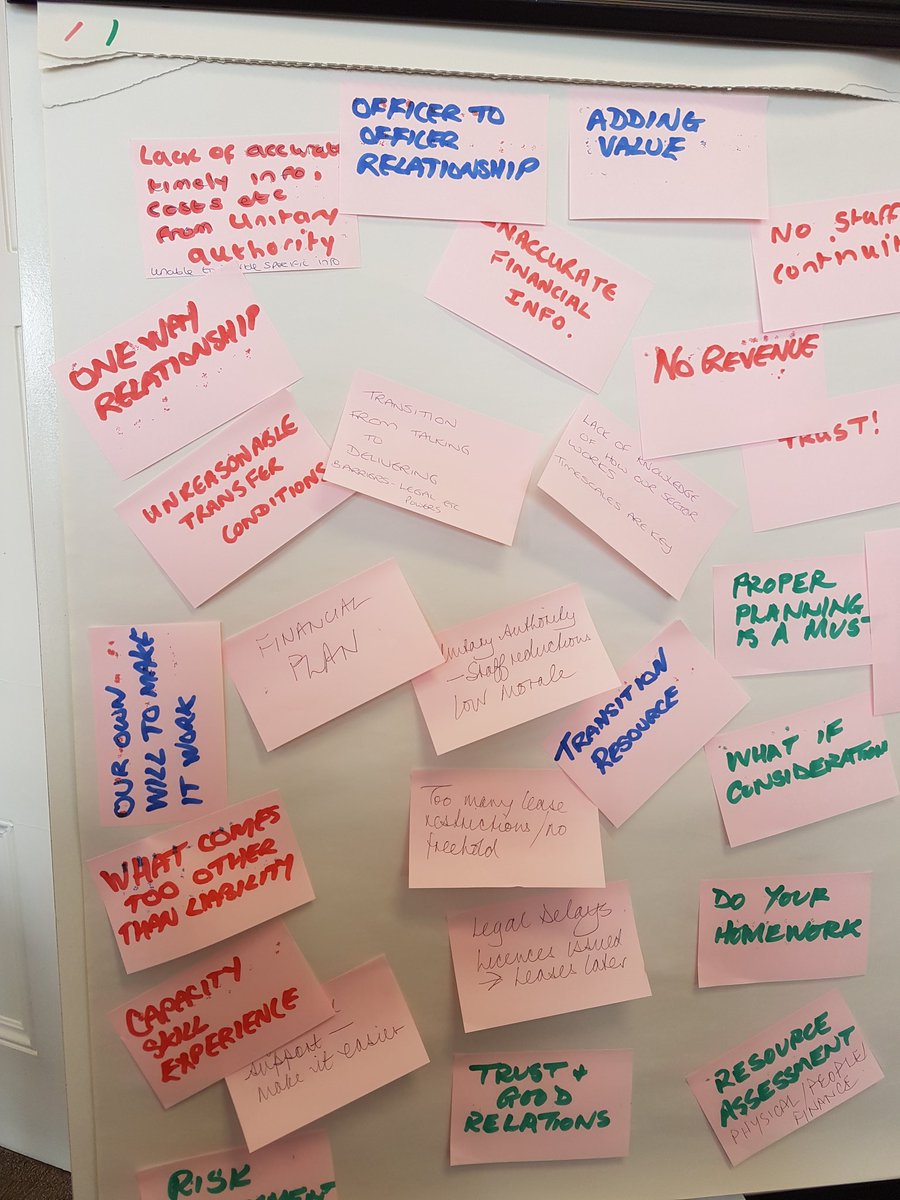 OFFICER TO
OFFICER
RELATIONSHIP
ADDING
VALUE
Lack of accurat
timely info,
costs etc
from Unitary
authority
NO Staff
continuit
INACCURATE
FINANCIAL
INFO.
ONE WAY
RELATIONSHIP
NO REVENUE
TRUST!
TRANSITION
FROM TALKING
TO
DELIVERING
BARRIERS - LEGAL ETC
POWERS
LACK OF KNOWLEDGE
OF HOW OUR SECTOR
WORKS
TIMESCALES ARE KEY
UNREASONABLE
TRANSFER
CONDITIONS
PROPER
PLANNING
IS A MUS
FINANCIAL
PLAN
Unitary Authority
- Staff reductions
Low Morale
TRANSITION
RESOURCE
OUR OWN
WILL TO MAKE
IT WORK
WHAT IF
CONSIDERATION
Too many lease
restrictions/no
freehold
WHAT COMES
TOO OTHER
THAN LIABILITY
DO YOUR
HOMEWORK
Legal delays
Licences issued
→ Leases later
CAPACITY
SKILL
EXPERIENCE
support —
make it easier
TRUST +
GOOD
RELATIONS
RESOURCE
ASSESSMENT
PHYSICAL/PEOPLE/
FINANCE
RISK